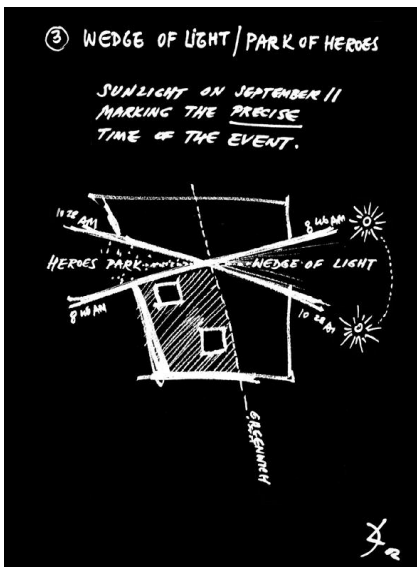 ③ WEDGE OF LIGHT / PARK OF HEROES
SUNLIGHT ON SEPTEMBER 11
MARKING THE PRECISE
TIME OF THE EVENT.
10 28 AM
8 46 AM
HEROES PARK
WEDGE OF LIGHT
8 46 AM
10 28 AM
GREENWICH